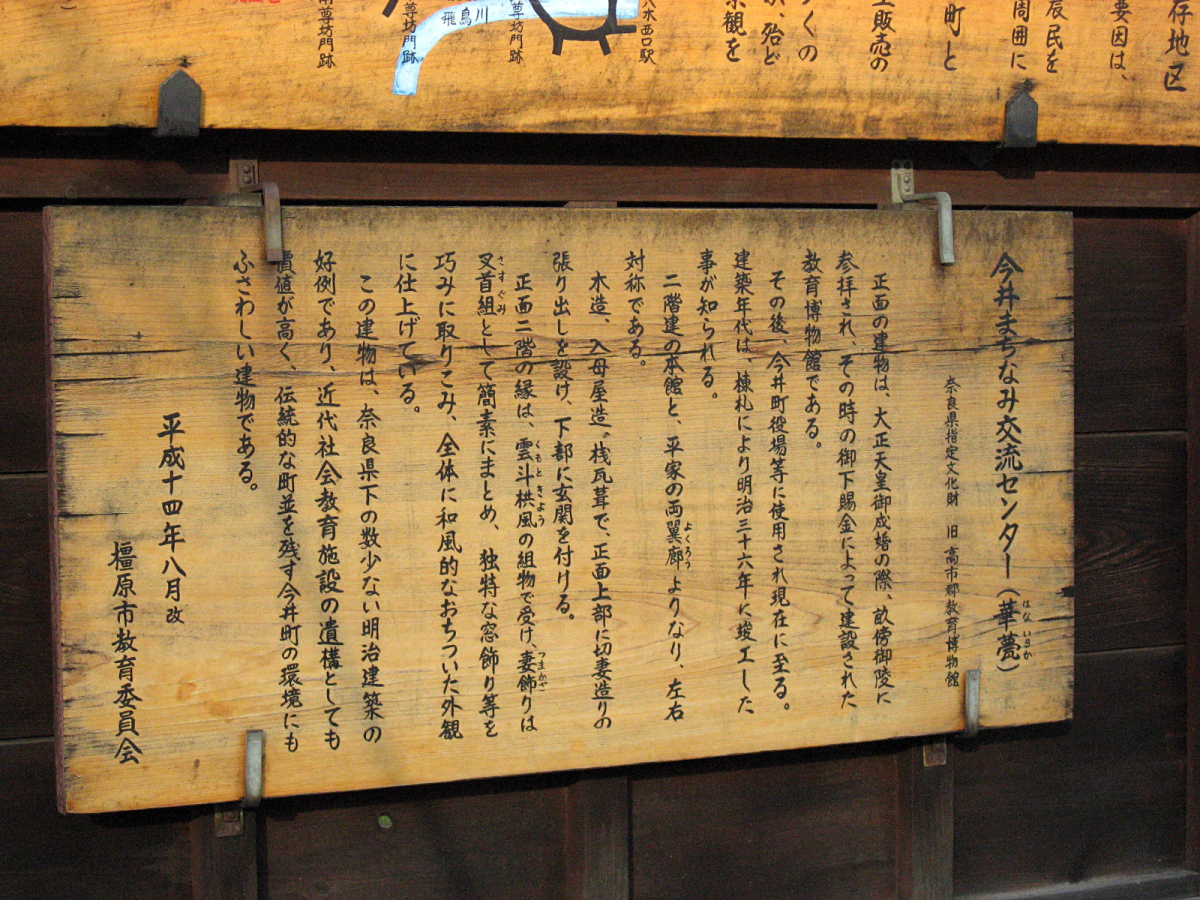 存地区
要因は、
辰民を
周囲に
町と
販売の
くの
、殆ど
観を
八木西口駅
尊坊門跡
飛鳥川
尊坊門跡
尊坊門跡
今井まちなみ交流センター(華甍)
はないらか
奈良県指定文化財 旧高市郡教育博物館
正面の建物は、大正天皇御成婚の際、畝傍御陵に
参拝され、その時の御下賜金によって建設された
教育博物館である。
その後、今井町役場等に使用され現在に至る。
建築年代は、棟札により明治三十六年に竣工した
事が知られる。
二階建の本館と、平家の両翼廊よりなり、左右
よくろう
対称である。
木造、入母屋造、桟瓦葺で、正面上部に切妻造りの
張り出しを設け、下部に玄関を付ける。
正面二階の縁は、雲斗栱風の組物で受け、妻飾りは
くもときよう
つまかざ
叉首組として簡素にまとめ、独特な窓飾り等を
さすぐみ
巧みに取りこみ、全体に和風的なおちついた外観
に仕上げている。
この建物は、奈良県下の数少ない明治建築の
好例であり、近代社会教育施設の遺構としても
価値が高く、伝統的な町並を残す今井町の環境にも
ふさわしい建物である。
平成十四年八月改
橿原市教育委員会